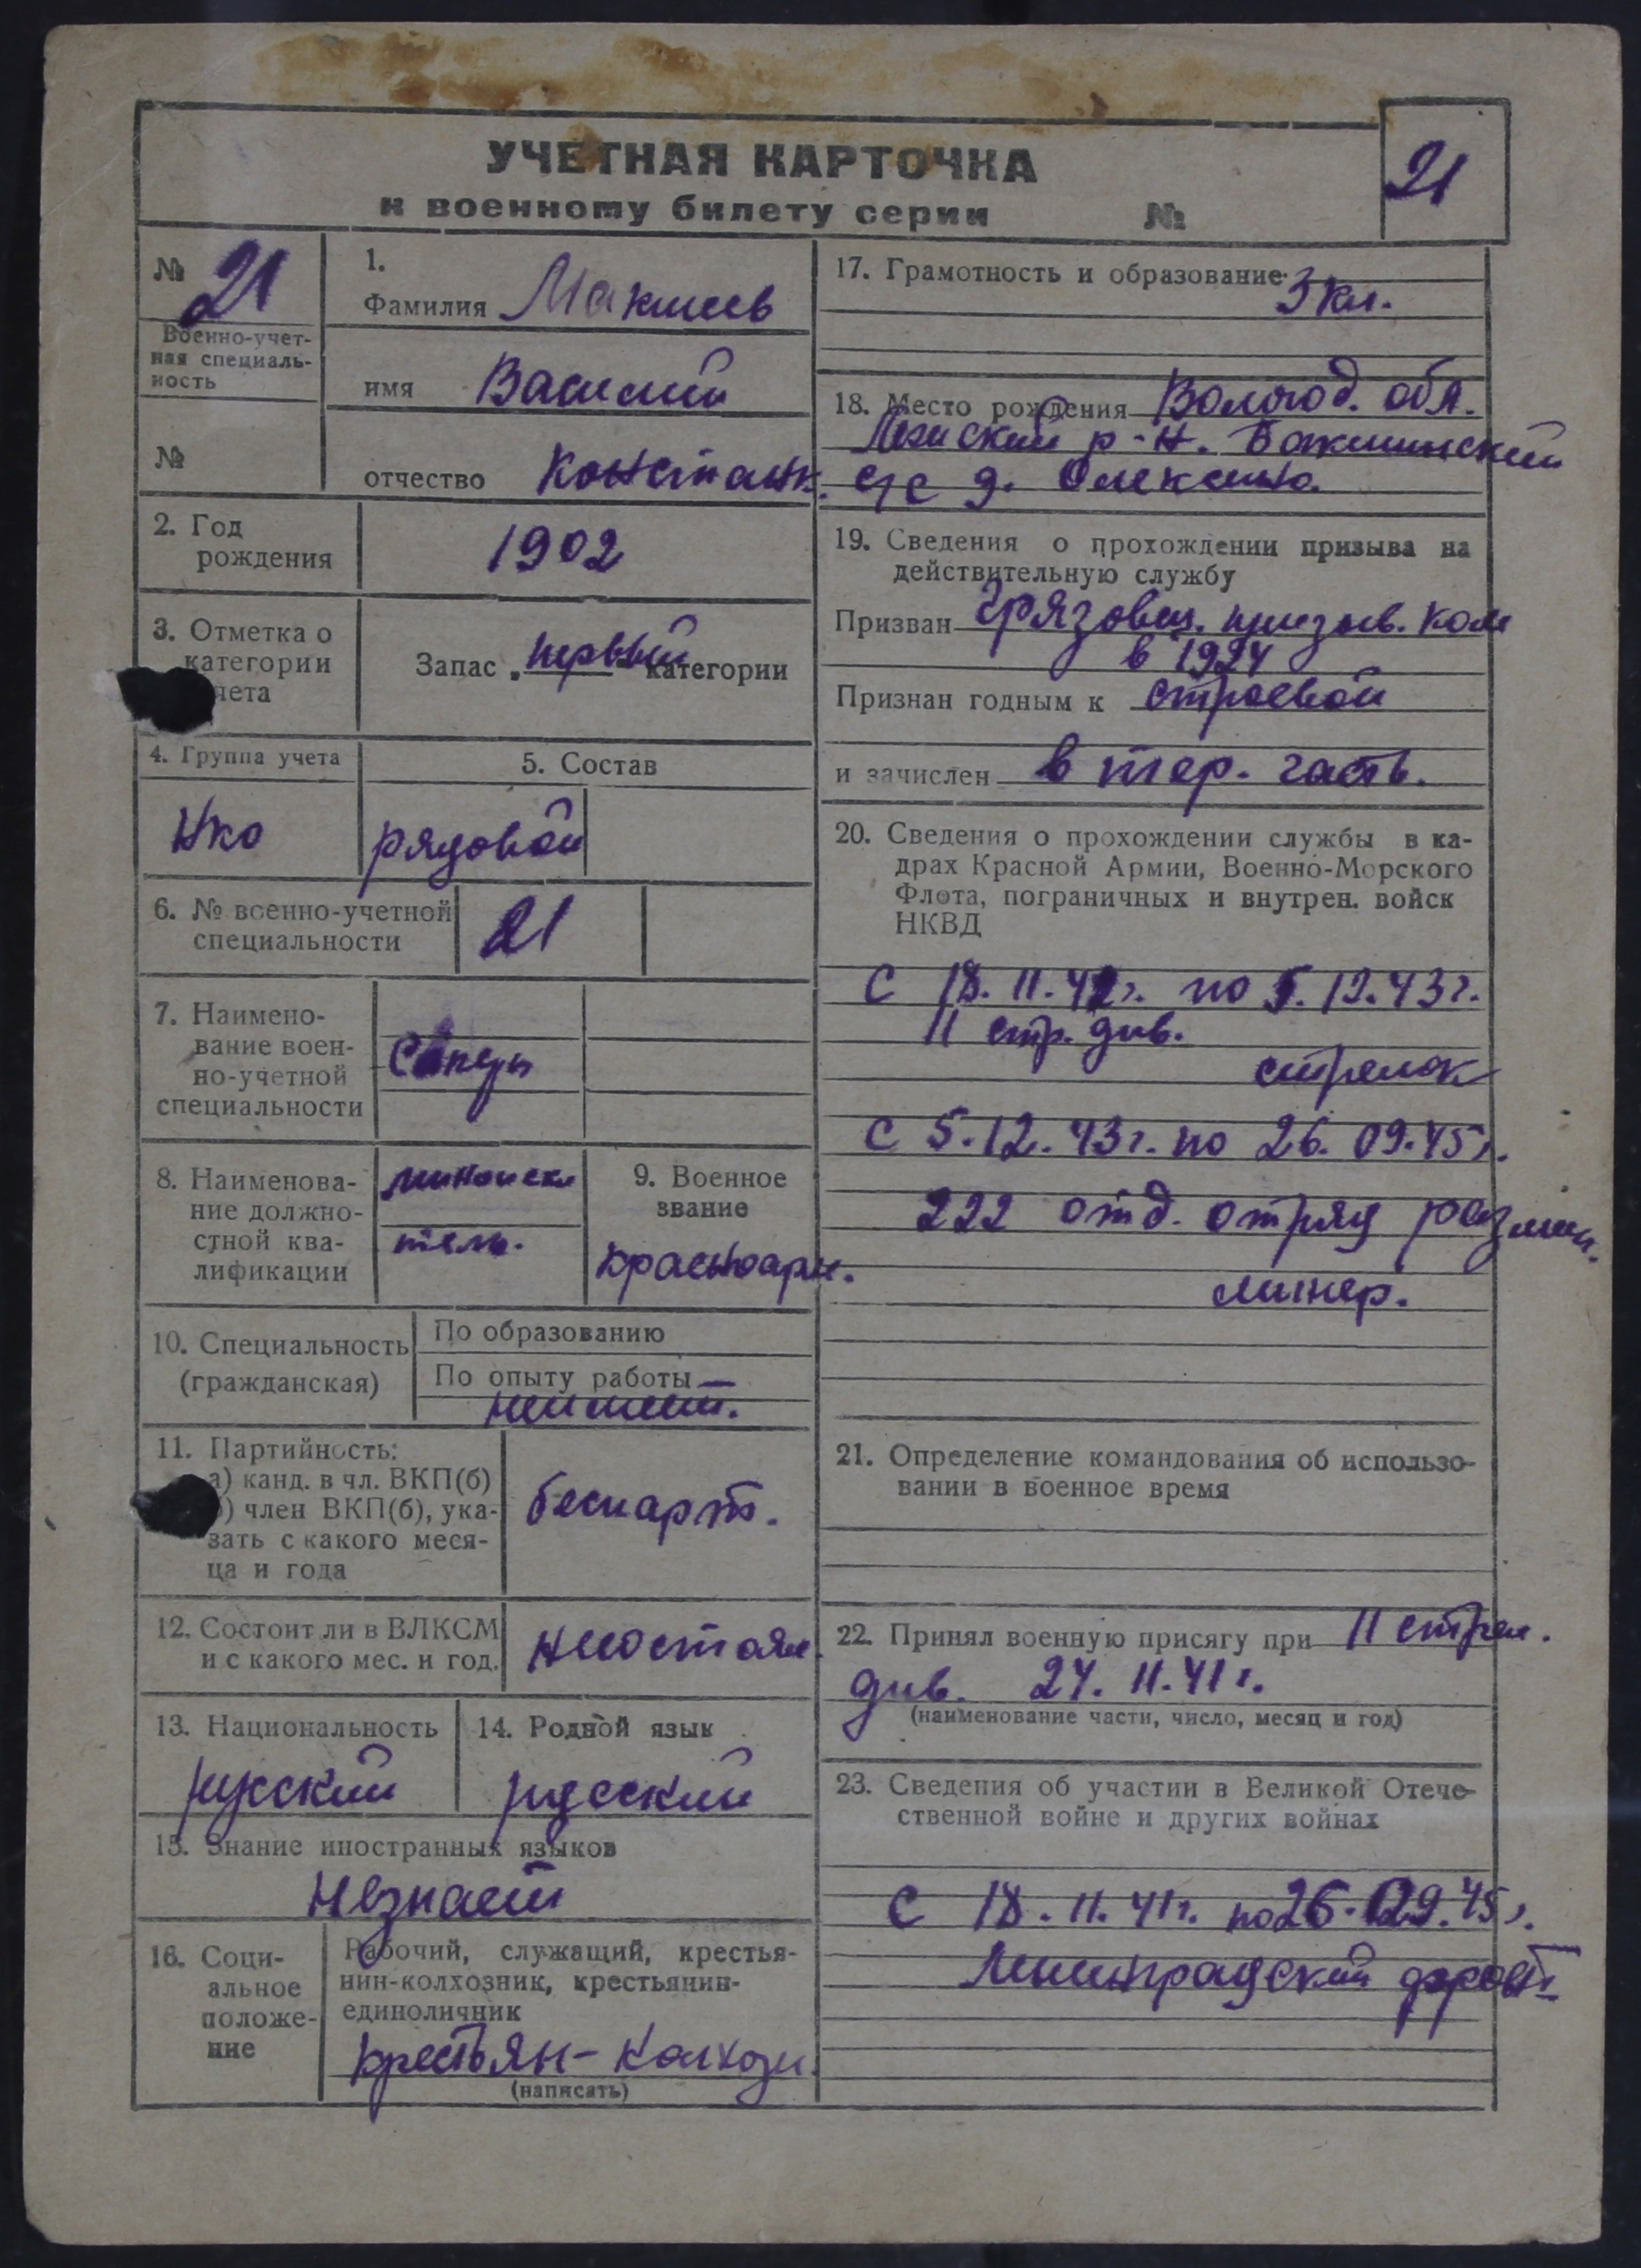 УЧЕТНАЯ КАРТОЧКА
к военному билету серии №
21
№ 21
Военно-учет-
ная специаль-
ность
№
1.
Фамилия Макшеев
имя Василий
отчество Констант.
2. Год
рождения
1902
3. Отметка о
категории
чета
Запас „первый“ категории
4. Группа учета
НКО
5. Состав
рядовой
6. № военно-учетной
специальности
21
7. Наимено-
вание воен-
но-учетной
специальности
Сапёры
8. Наименова-
ние должно-
стной ква-
лификации
миноиска
тель.
9. Военное
звание
красноарм.
10. Специальность
(гражданская)
По образованию
По опыту работы
неимеет.
11. Партийность:
а) канд. в чл. ВКП(б)
б) член ВКП(б), ука-
зать с какого меся-
ца и года
беспарт.
12. Состоит ли в ВЛКСМ
и с какого мес. и год.
несостоял.
13. Национальность
русский
14. Родной язык
русский
15. Знание иностранных языков
Незнает
16. Соци-
альное
положе-
ние
Рабочий, служащий, крестья-
нин-колхозник, крестьянин-
единоличник
крестьян-колхозн.
(написать)
17. Грамотность и образование 3 кл.
18. Место рождения Вологод. обл.
р-н.
с/с д. Олексино.
19. Сведения о прохождении призыва на
действительную службу
Призван Грязовец. призыв. ком
в 1924
Признан годным к строевой
и зачислен в тер. часть.
20. Сведения о прохождении службы в ка-
драх Красной Армии, Военно-Морского
Флота, пограничных и внутрен. войск
НКВД
С 18. 11. 41г. по 5. 12. 43г.
11 стр. див.
стрелок
С 5. 12. 43г. по 26. 09. 45г.
222 отд. отряд размин.
минер.
21. Определение командования об использо-
вании в военное время
22. Принял военную присягу при 11 стрел.
див. 24. 11. 41 г.
(наименование части, число, месяц и год)
23. Сведения об участии в Великой Отече-
ственной войне и других войнах
С 18. 11. 41г. по 26. 09. 45г.
Ленинградский фронт